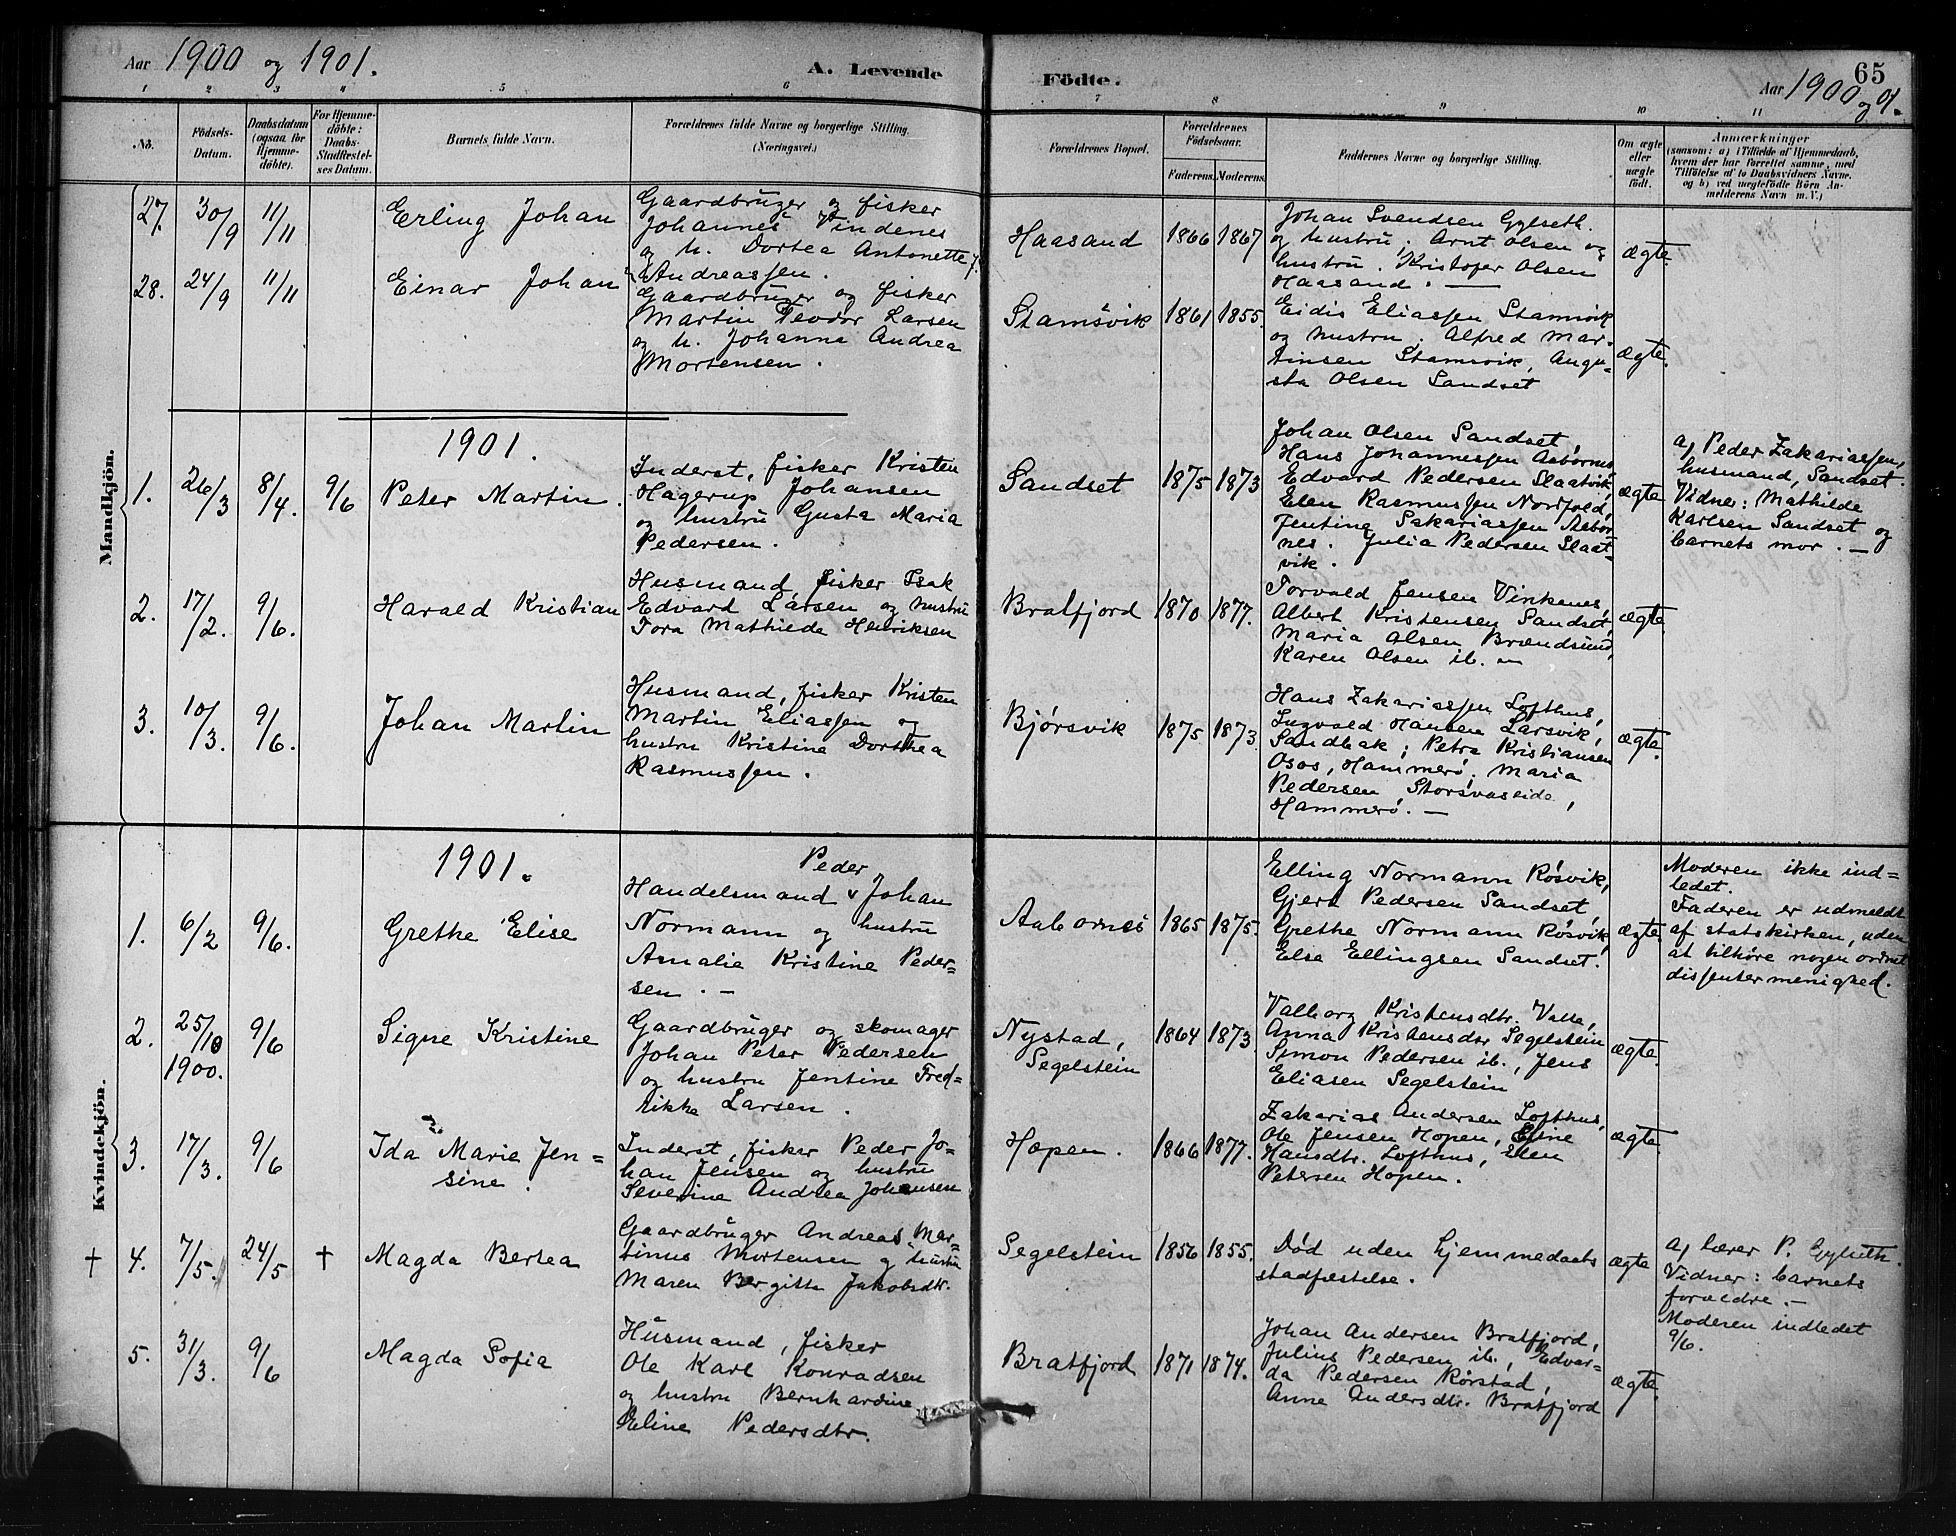 Aar 1900 og 1901.
A. Levende
Födte.
Aar 1900 og 01.
65
1 2 3 4 5 6 7 8 9 10 11
No.
Födsels-
Datum.
Daabsdatum
(ogsaa for
Hjemme-
döbte).
For Hjemme-
döbte:
Daabs-
Stadfæstel-
ses Datum.
Barnets fulde Navn.
Forældrenes fulde Navne og borgerlige Stilling.
(Næringsvei.)
Forældrenes Bopæl.
Forældrenes
Födselsaar.
Faderens. Moderens.
Faddernes Navne og borgerlige Stilling.
Om ægte
eller
uægte
födt.
Anmærkninger
(saasom: a) i Tilfælde af Hjemmedaab,
hvem der har forrettet samme, med
Tilföielse af to Daabsvidners Navne,
og b) ved uægtefödte Börn An-
melderens Navn m. V.)
Mandkjön.
27. 30/9 11/11 Erling Johan
Gaardbruger og fisker
Johannes Vindenes
og h. Dortea Antonette
Andreassen.
Haasand 1866 1867
Johan Svendsen Gylseth
og hustru, Arnt Olsen og
hustru, Kristofer Olsen
Haasand. —
ægte.
28. 24/9 11/11 Einar Johan
Gaardbruger og fisker
Martin Teodor Larsen
og h. Johanna Andrea
Mortensen.
Stamsvik 1861 1855.
Eidis Eliassen Stamsvik
og hustru, Alfred Mar-
tinsen Stamsvik, Augu-
sta Olsen Sandset
ægte.
1901.
1. 26/3 8/4. 9/6 Peter Martin.
Inderst, fisker Kristen
Hagerup Johansen
og hustru Gusta Maria
Pedersen.
Sandset 1875 1873
Johan Olsen Sandset,
Hans Johannessen Asbørnes
Edvard Pedersen Slaatvik,
Elen Rasmussen Norfold,
Jentine Sakariassen Asbør-
nes. Julia Pedersen Slaat-
vik.
ægte
a, Peder Zakariassen,
husmand, Sandset.
Vidner: Mathilde
Karlsen Sandset og
barnets mor. —
2. 17/2. 9/6. Harald Kristian
Husmand, fisker Isak
Edvard Larsen og hustru
Tora Mathilde Henriksen
Bratfjord 1870 1877.
Torvald Jensen Vinkenes,
Albert Kristensen Sandset,
Maria Olsen Brændsund,
Karen Olsen ib. —
ægte.
3. 10/3. 9/6. Johan Martin
Husmand, fisker Kristen
Martin Eliassen og
hustru Kristine Dorthea
Rasmussen.
Bjørsvik 1875 1873.
Hans Zakariassen Lofthus,
Ingvald Hansen Larsvik,
Sandbak; Petra Kristiansen
Osos, Hammerø, Maria
Pedersen Storsvaseide,
Hammerø. —
ægte.
Kvindekjön.
1901.
1. 6/2 9/6. Grethe Elise
Peder
Handelsmand v Johan
Normann og hustru
Amalie Kristine Peder-
sen. —
1865 1875.
Elling Normann Røsvik,
Gjert Pedersen Sandset,
Grethe Normann Røsvik,
Else Ellingsen Sandset.
ægte.
Moderen ikke ind=
ledet.
Faderen er udmeldt
af statskirken, uden
at tilhøre nogen ordnet
dissentermenighed.
2. 25/10 1900. 9/6 Signe Kristine
Gaardbruger og skomager
Johan Peter Pedersen
og hustru Jentine Fred=
rikke Larsen.
Nystad,
Segelstein
1864 1873.
Valborg Kristensdtr. Valle,
Anna Kristensdtr Segelstein
Simon Pedersen ib., Jens
Eliasen Segelstein
ægte.
3. 17/3. 9/6 Ida Marie Jen=
sine.
Inderst, fisker Peder Jo-
han Jensen og hustru
Severine Andrea Johansen
Hopen. 1866 1877.
Zakarias Andersen Lofthus,
Ole Jensen Hopen, Eline
Hansdtr. Lofthus, Elen
Petersen Hopen.
ægte.
† 4. 7/5. 24/5 † Magda Bertea
Gaardbruger Andreas Mar-
tinus Mortensen og hustru
Maren Bergitte Jakobsdtr.
Segelstein 1856 1855.
Død uden hjemmedaabs
stadfæstelse.
ægte
a, lærer P. Gylseth.
Vidner: barnets
forældre. —
Moderen indledet
9/6.
5. 31/3. 9/6 Magda Sofia
Husmand, fisker
Ole Karl Konradsen
og hustru Bernhardine
Eline Pedersdtr.
Bratfjord 1871 1874.
Johan Andersen Bratfjord,
Julius Pedersen ib., Edvar-
da Pedersen Rørstad,
Anne Andersdtr. Bratfjord
ægte.